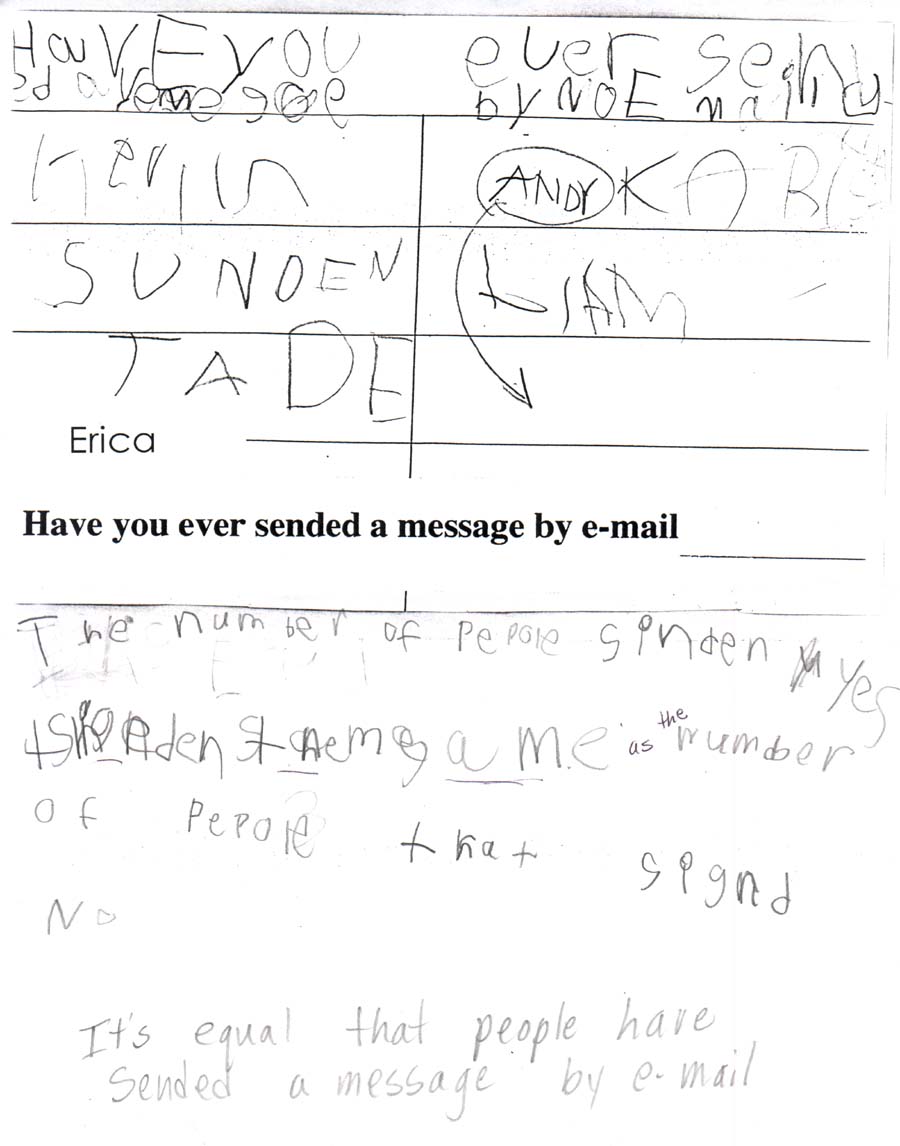 HaVE you ever send
ed a by NOE mail
Kevin ANDY KAB
SUNDEN LIAM
TADE
Erica
Have you ever sended a message by e-mail
The number of Pepole sinden yes
ame as the number
of Pepole that signd
No
It's equal that people have
Sended a message by e-mail